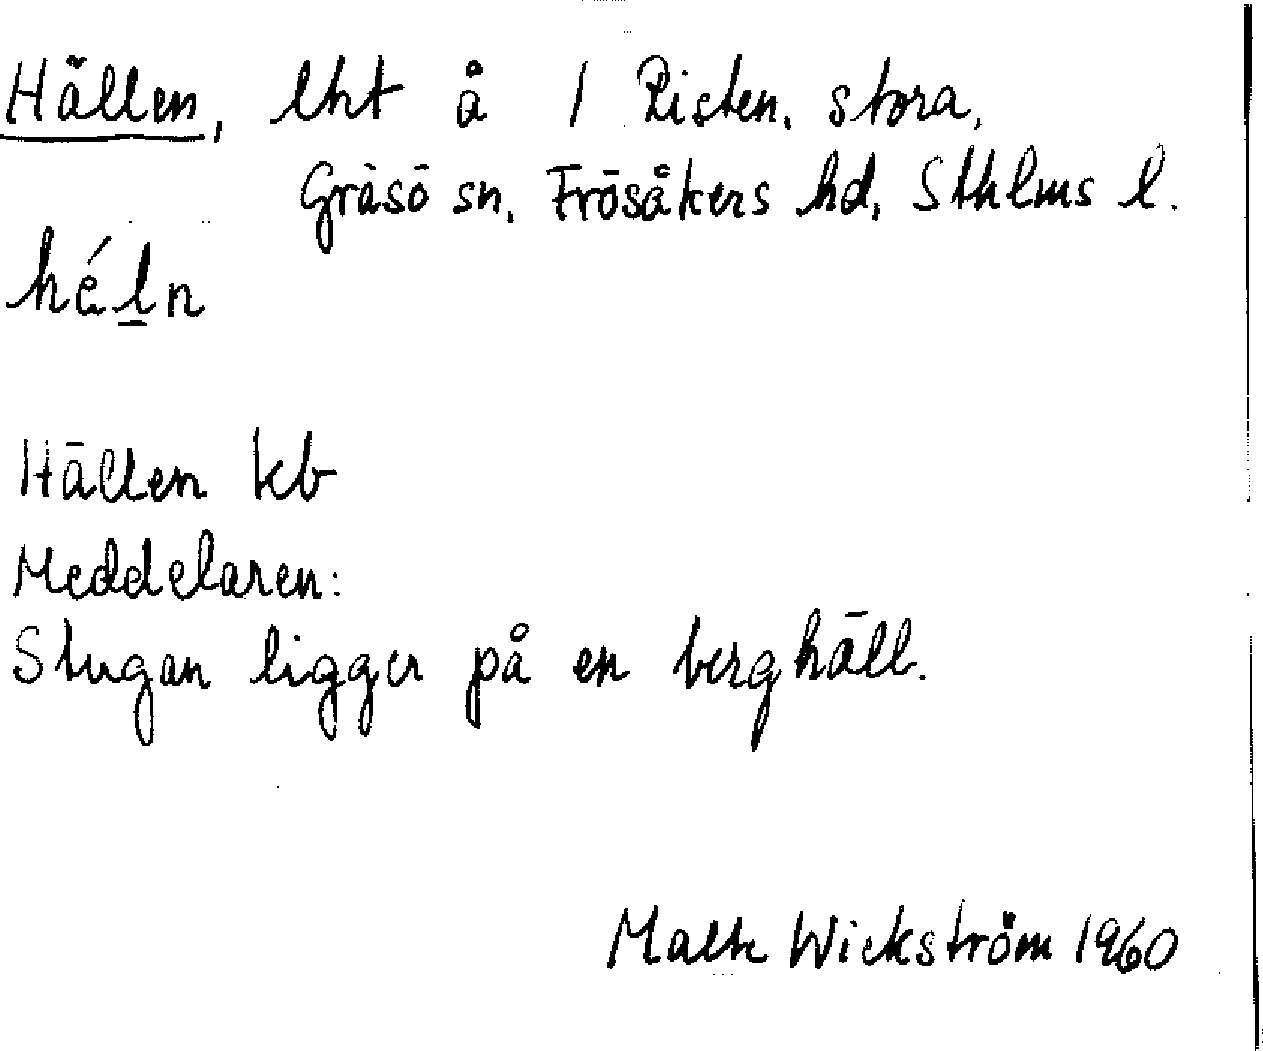 Hällen, lht å 1 Risten, stora,
Gräsö sn, Frösåkers hd, Sthlms l.
héln
Hällen kb
Meddelaren:
Stugan ligger på en berghäll.
Malte Wickström 1960